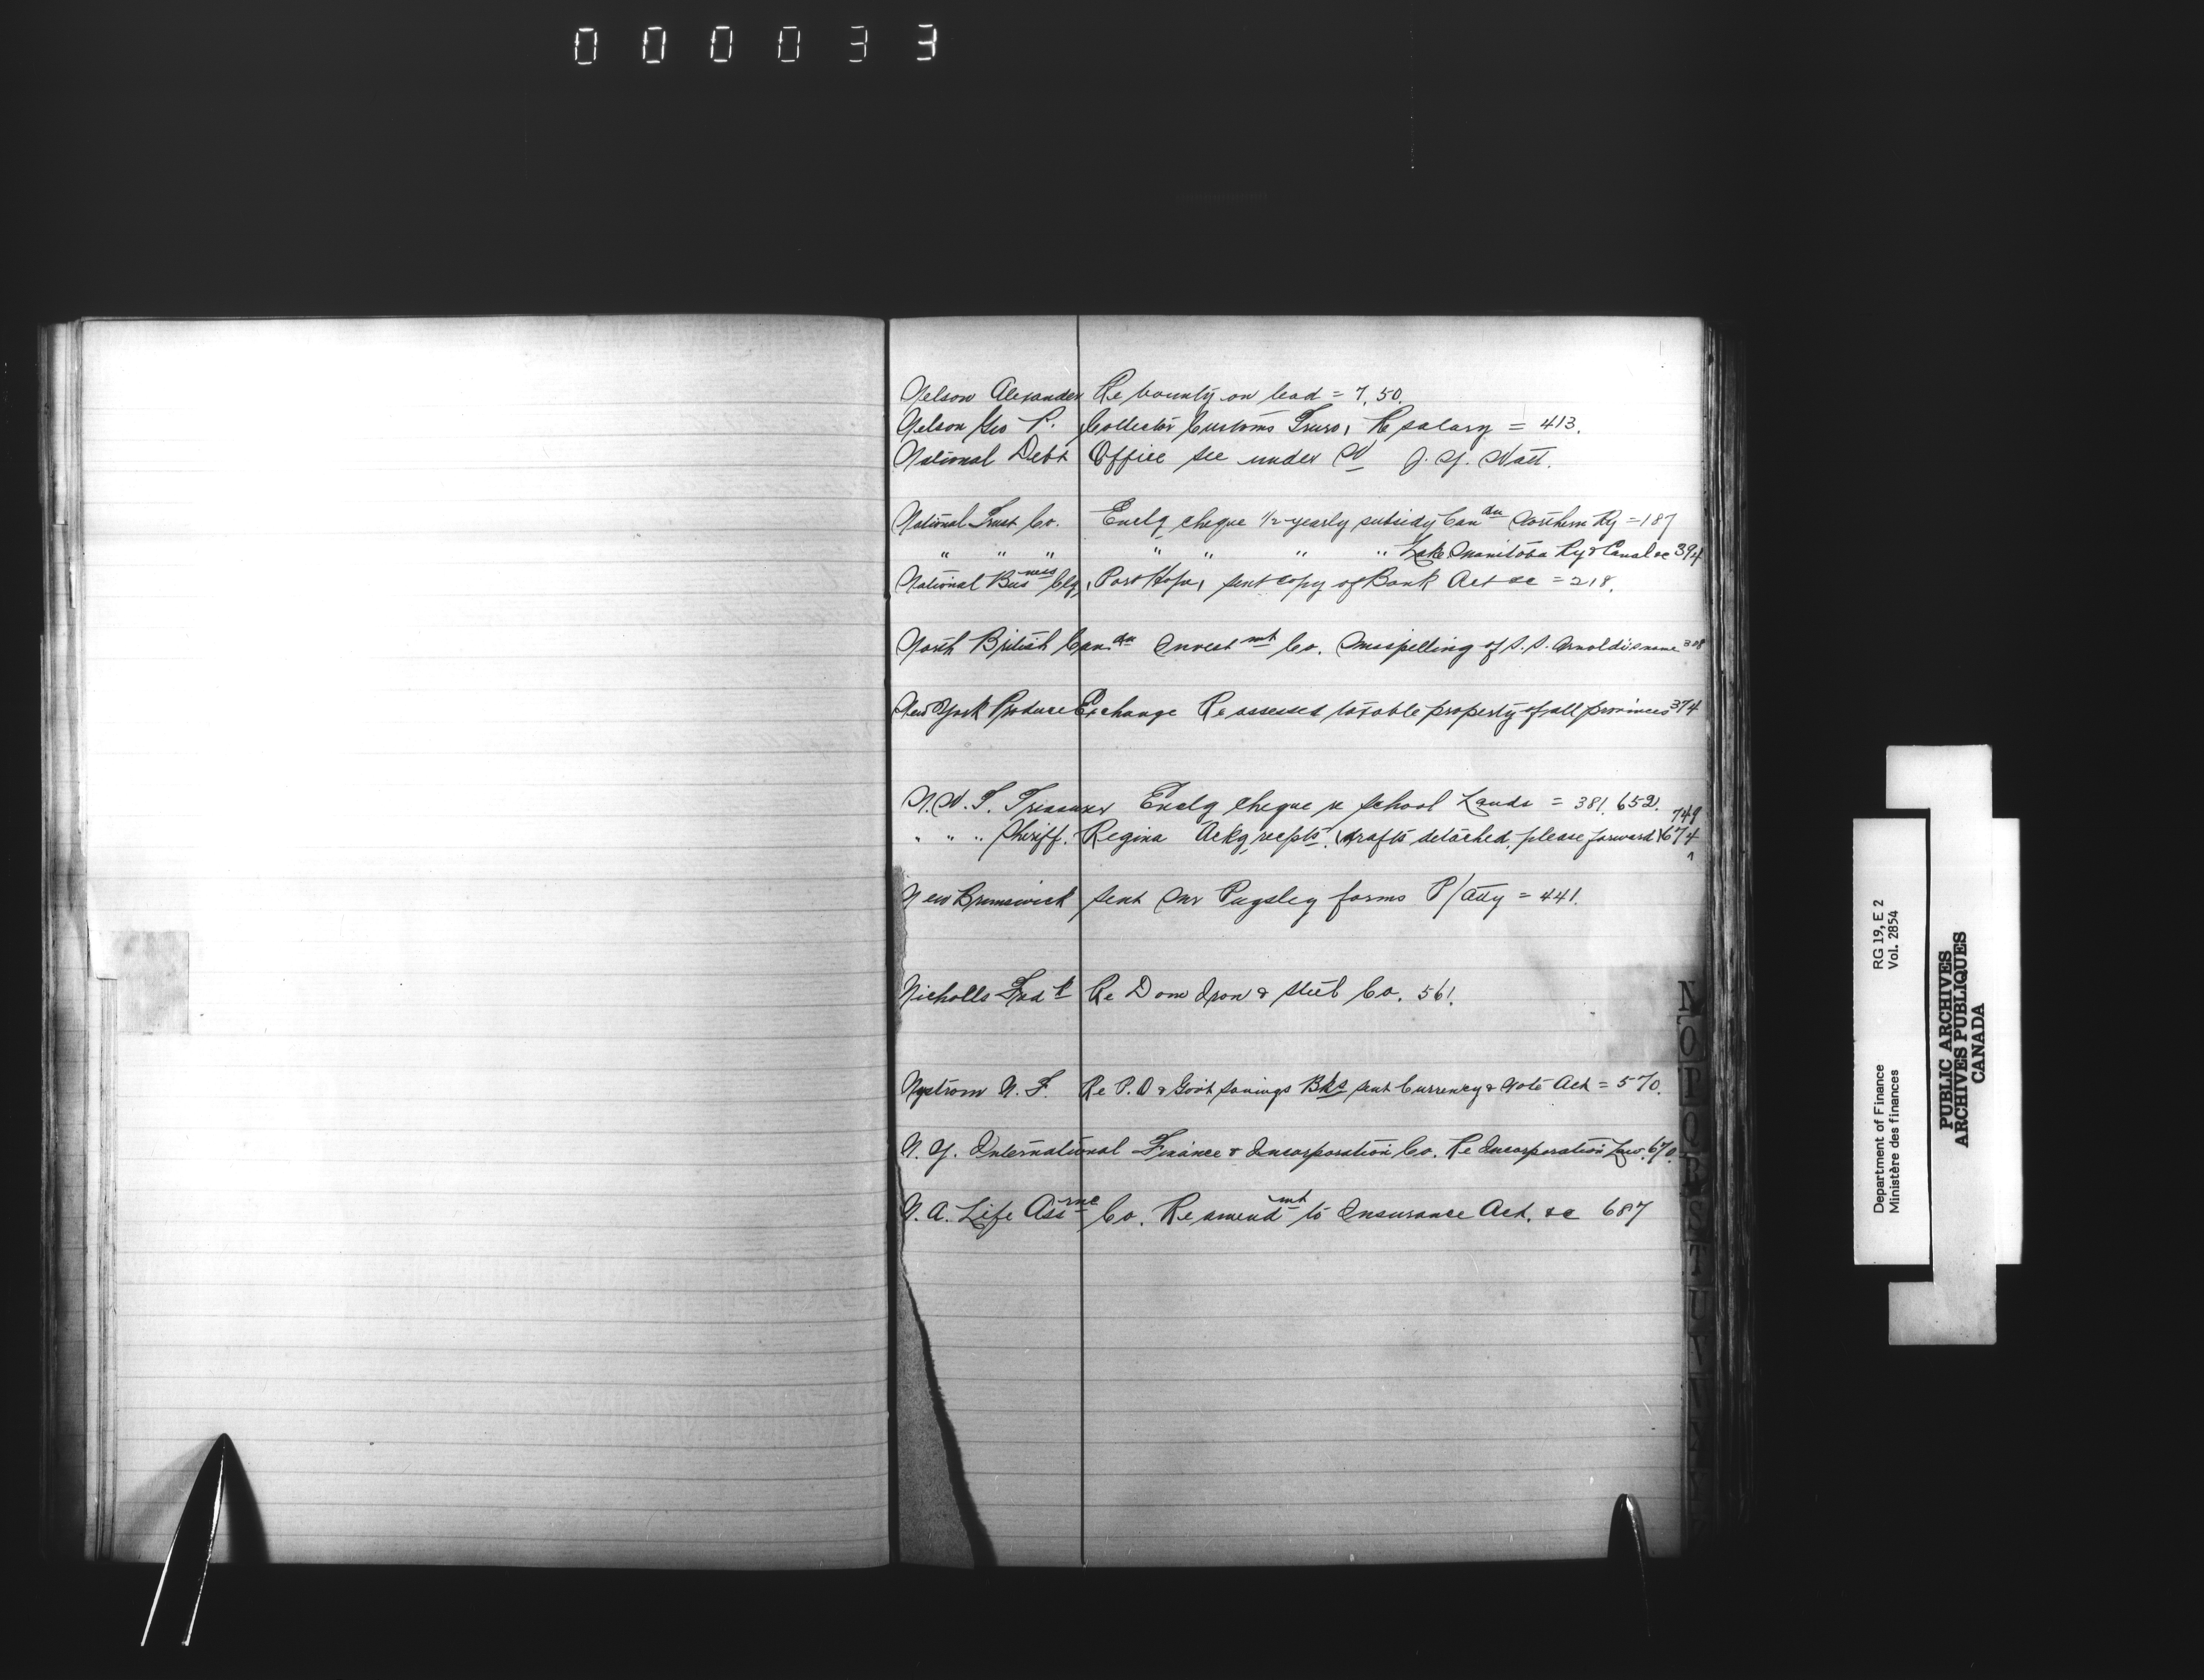 000033
Nelson Alexander Re bounty on lead = 7, 50.
Nelson Geo P. Collector Customs Truro, Re salary = 413.
National Debt Office see under W J. Y. Watt.
National Trust Co. Enclg cheque 1/2 yearly subsidy Can dn Northern Ry = 187
" " " " " " " Lake Manitoba Ry & Canal &c 394
National Bus ness Clg, Port Hope, sent copy of Bank Act &c = 218.
North British Can dn Invest mt Co. Misspelling of S. S. Arnoldi's name 308
New York Produce Exchange Re assessed taxable property of all provinces 374
N. W. T. Treasurer Enclg cheque re School Lands = 381, 652. 749
" " " Sheriff. Regina Ackg recpts. (drafts detached, please forward) 674
New Brunswick sent Mr Pugsley forms P/Atty = 441.
Nicholls Fred k Re Dom Iron & Steel Co. 561.
Nystrom N. F. Re P.O & Govt Savings Bks sent Currency & Note Act = 570.
N. Y. International Finance & Incorporation Co. Re Incorporation Law. 670.
N. A. Life Ass rnce Co. Re amend mt to Insurance Act. &c 687
N
O
P
Q
R
S
T
U
V
W
RG 19, E 2
Vol. 2854
Department of Finance
Ministère des finances
PUBLIC ARCHIVES
ARCHIVES PUBLIQUES
CANADA